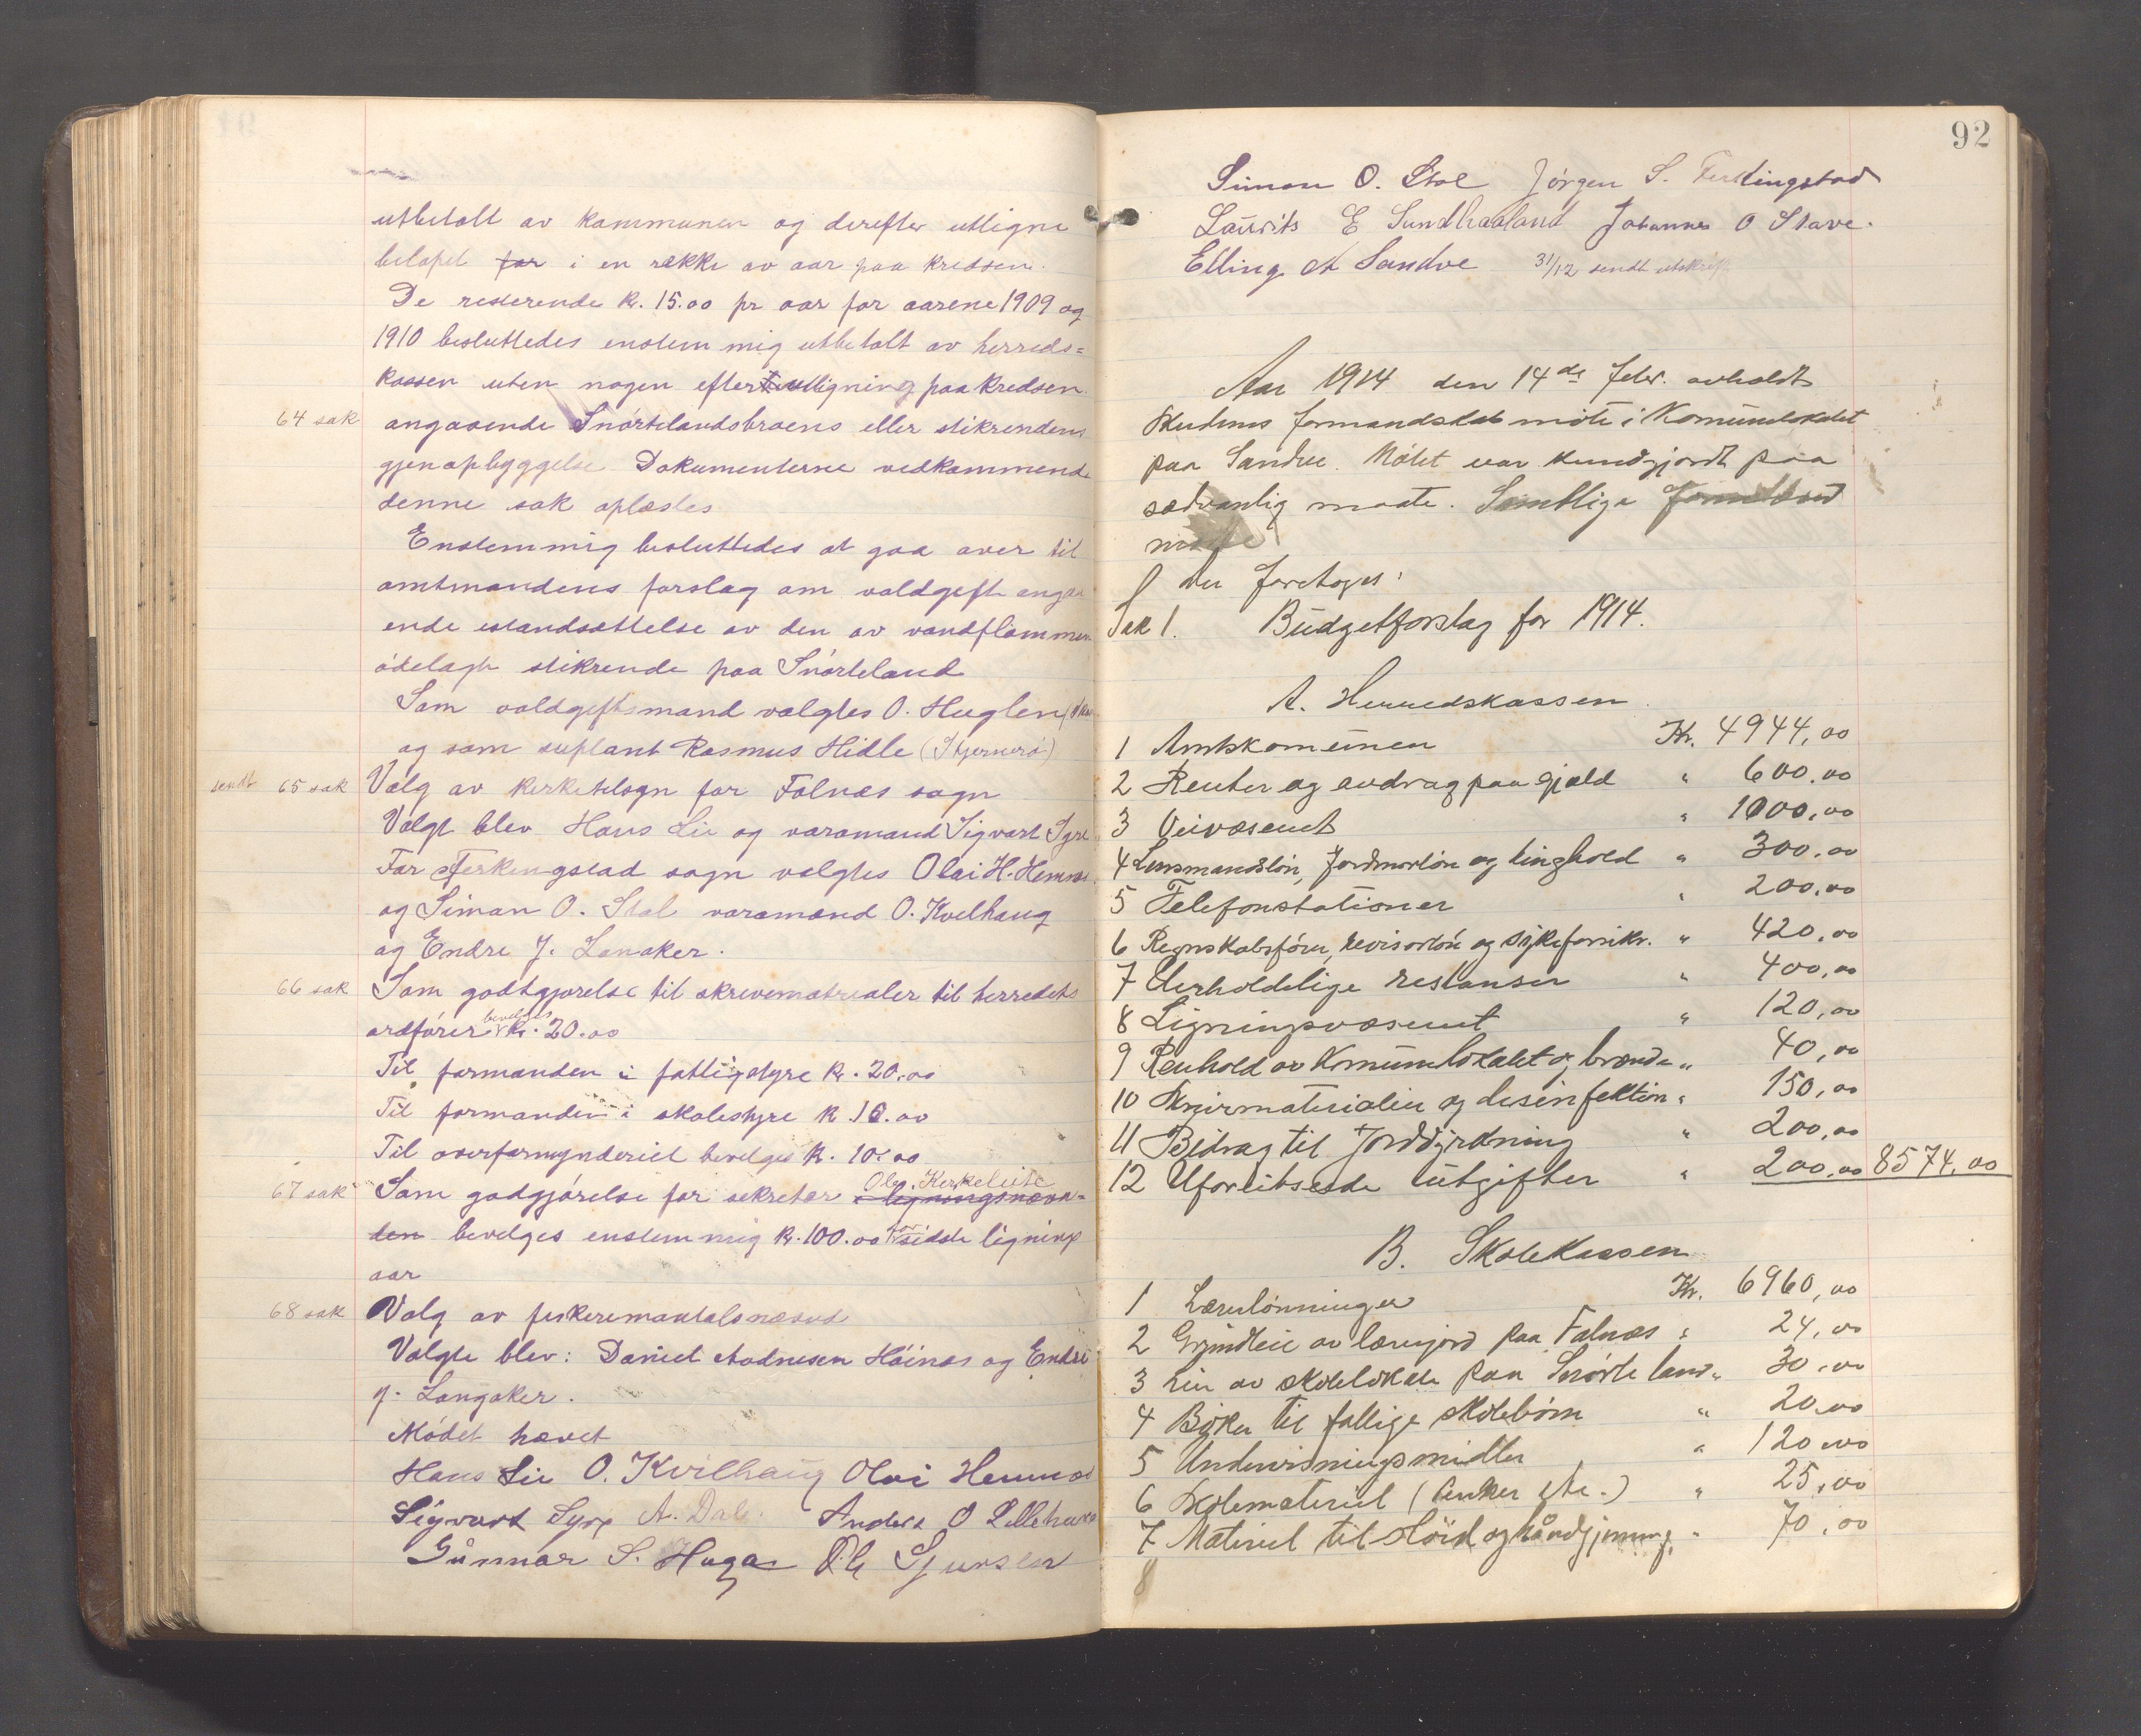 utbetalt av kommunen og derefter utligne
beløpet for i en række av aar paa kredsen.
De resterende kr. 15.00 pr aar for aarene 1909 og
1910 besluttedes enstemmig utbetalt av herreds=
kassen uten nogen efterutligning paa kredsen.
64 sak angaaende Snörtelandsbroens eller stikrendens
gjenopbyggelse Dokumenterne vedkommende
denne sak oplæstes
Enstemmig besluttedes at gaa over til
amtmandens forslag om voldgift angaa
ende istandsættelse av den av vandflommen
ödelagte stikrende paa Snörteland
Som voldgiftsmand valgtes O. Huglen
og som suplant Rasmus Hidle (Stjernerö)
sendt 65 sak Valg av kirketilsyn for Falnæs sogn
Valgt blev Hans Lie og varamand Sigvart Syre
For Ferkingstad sogn valgtes Olai H. Hemnes
og Simon O. Stol varamænd O. Kvilhaug
og Endre J. Langaker.
66 sak Som godtgjørelse til skrivematrialer til herredets
ordförer bevilges kr. 20.00
Til formanden i fattigstyre kr. 20.00
Til formanden i skolestyre kr. 10.00
Til overformynderiet bevilges kr. 10.00
67 sak Som godgjörelse for sekretær Ole Kirkeleite i ligningsnævn=
den bevilges enstemmig kr. 100.00 for sidste lignings
aar
68 sak Valg av fiskerimantalsnævnd
Valgte blev: Daniel Andresen Höinæs og Endre
J. Langaker.
Mödet hævet
Hans Lie O. Kvilhaug Olai Hemnes
Sigvart Syre A. Dale. Anders O Lillehava
Gunnar S. Haga Ole Sjursen
92
Simon O. Stol Jörgen S. Ferkingstad
Laurits E Sundhaaland Johannes O Stave.
Elling A Sandve 31/12 sendt utskrift
Aar 1914 den 14de febr. avholdt
Skudenes formandskab möte i Komunelokalet
paa Sandve. Mötet var kundgjordt paa
sædvanlig maate. Samtlige formænd
mötte
Der foretoges:
Sak 1. Budgetforslag for 1914.
A. Herredskassen
1 Amtskomunen Kr. 4944,00
2 Renter og avdrag paa gjæld " 600.00
3 Veivæsenet " 1000,00
4 Lensmandslön, Jordmorlön og tinghold " 300.00
5 Telefonstationer " 200.00
6 Regnskabsförer, revisorlön og sykeforsikr. " 420.00
7 Uerholdelige restanser " 400,00
8 Ligningsvæsenet " 120,00
9 Renhold av Komunelokalet og brænde " 40,00
10 Skrivmaterialier og desinfektion " 150,00
11 Bidrag til jorddyrkning " 200,00
12 Uforutsesede utgifter " 200.00 8574,00
B. Skolekassen
1 Lærerlönninger Kr. 6960,00
2 Grundleie av lærerjord paa Falnæs " 24,00
3 Leie av skolelokale paa Snörteland " 30.00
4 Böker til fattige skolebörn " 20.00
5 Undervisningsmidler " 120.00
6 Skolemateriel (Pulter etc.) " 25,00
7 Materiel til slöid og håndgjerning " 70.00
8